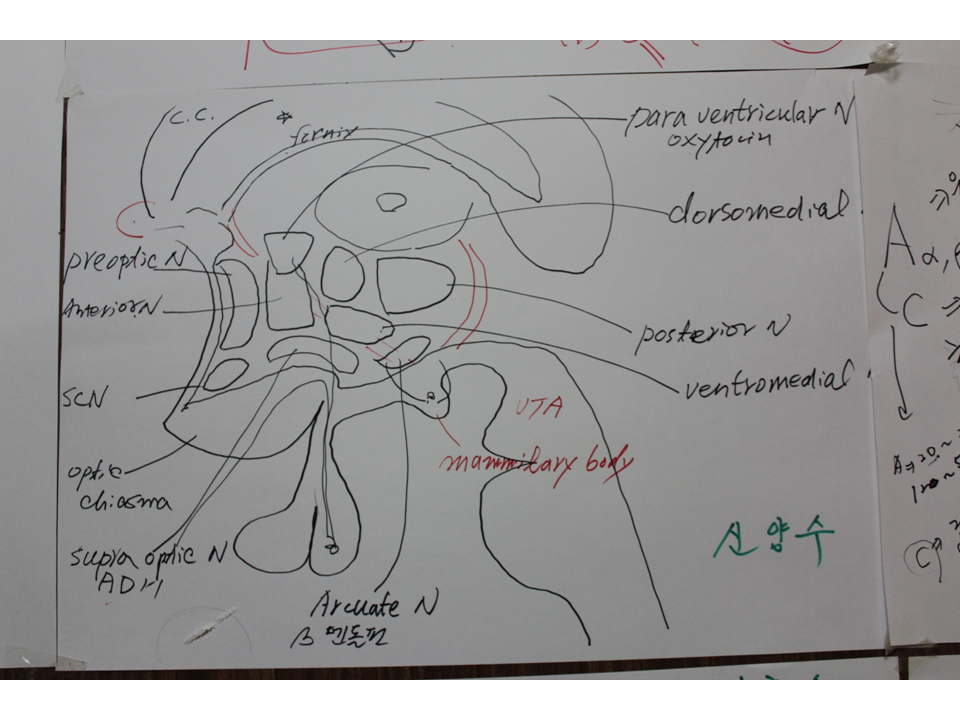 C.C.
fornix
para ventricular N
oxytocin
dorsomedial
preoptic N
Anterior N
posterior N
ventromedial
SCN
VTA
mammilary body
optic
chiasma
supra optic N
ADH
Arcuate N
β 엔돌핀
신양수
A α,
C